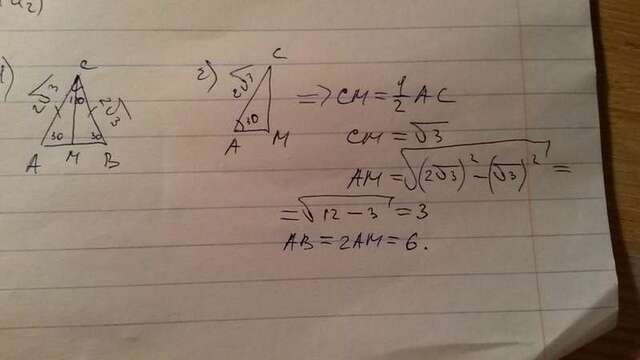 1) C
2√3 120 2√3
30 30
A M B
2) C
2√3
30
A M
=> CM = 1/2 AC
CM = √3
AM = √((2√3)² - (√3)²) =
= √(12 - 3) = 3
AB = 2AM = 6.